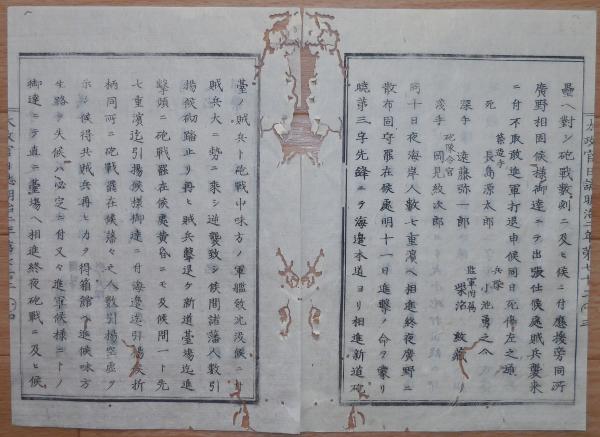 太政官日誌明治二年第七十二 四ノ三
壘ヘ對シ砲戰數刻ニ及ヒ候ニ付應接旁同所
廣野相固候樣御達ニテ出張仕候處賊兵襲来
ニ付不取敢進軍打退申候同日死傷左之通
死 長島源太郎 小池勇之介
深手 遠藤弥一郎 柴活
淺手 岡見紋次郎
砲隊令官
監軍附属
同十日夜海岸人數七重濱ヘ相進終夜廣野ニ
散布固守罷在候處明十一日進擊ノ命ヲ蒙リ
曉第三字先鋒ニテ海邊本道ヨリ相進新道砲
臺ノ賊兵ト砲戰中味方ノ軍艦致沈没候ニ付
賊兵大ニ勢ニ乘シ逆襲致シ候間諸藩人數引
揚候砌踏止リ再ヒ賊兵擊退ケ新道臺場迄進
擊頻ニ砲戰罷在候處黄昏ニモ及候間一ト先
七重濱迄引揚候樣御達ニ付海邊迄引揚候折
柄同所ニ砲戰罷在候藩々之人數引揚空虚ヲ
示シ候得共賊兵再ヒ力ヲ得箱館ヘ進候味方
生路ヲ失候ハ必定ニ付又々進軍候樣ニトノ
御達ニテ直ニ臺場ヘ相進終夜砲戰ニ及ヒ候